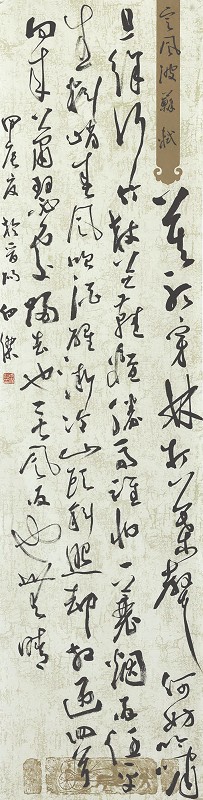 定風波 蘇軾
莫聽穿林打葉聲 何妨吟嘯
且徐行 竹杖芒鞋輕勝馬 誰怕 一蓑烟雨任平
生 料峭春風吹酒醒 微冷 山頭斜照却相迎 回首
向来蕭瑟處 歸去 也無風雨也無晴
甲辰夏 於晋陽 白傑